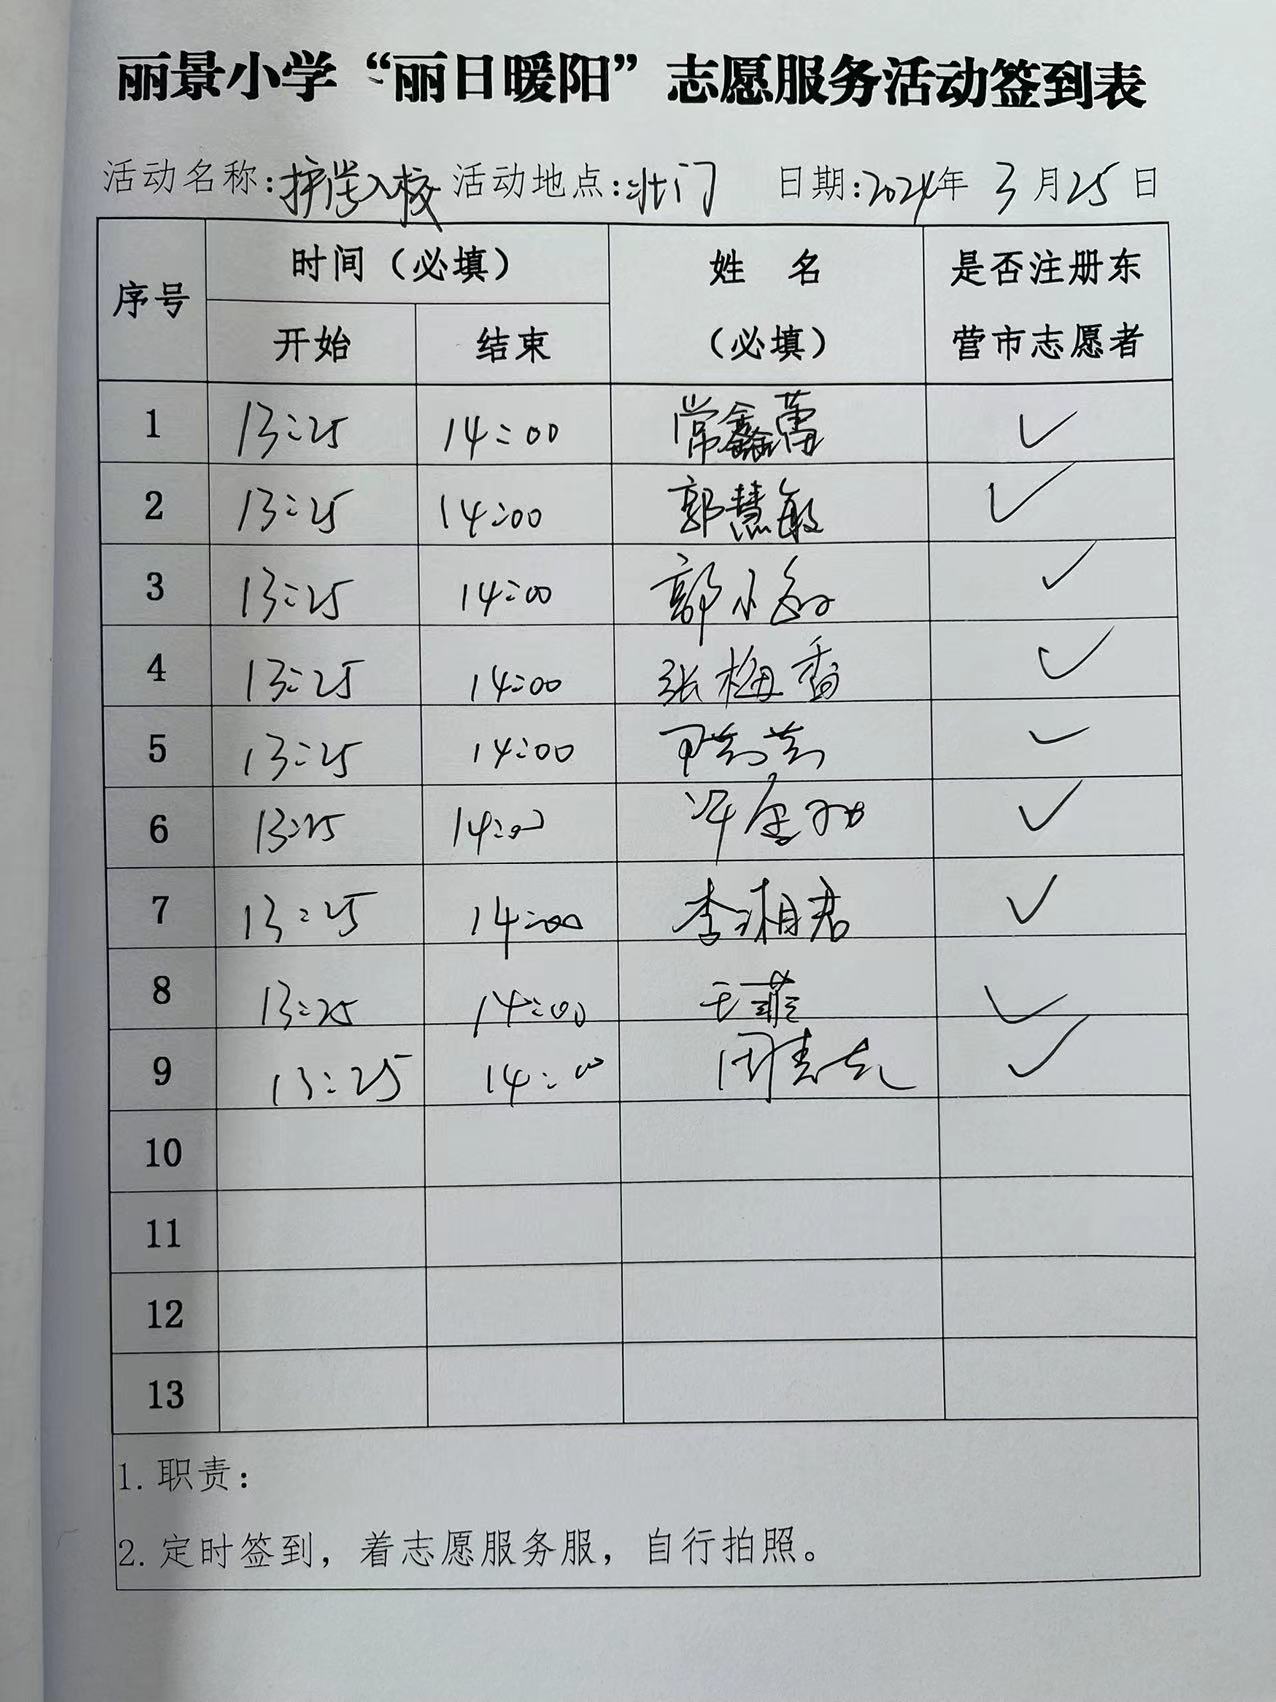 丽景小学“丽日暖阳”志愿服务活动签到表
活动名称:护学入校 活动地点:北门 日期:2024年 3月25日
序号 时间（必填） 姓 名（必填） 是否注册东营市志愿者
开始 结束
1 13:25 14:00 常鑫蕾 ✓
2 13:25 14:00 郭慧敏 ✓
3 13:25 14:00 郭小 ✓
4 13:25 14:00 张梅香 ✓
5 13:25 14:00 ✓
6 13:25 14:00 ✓
7 13:25 14:00 李湘君 ✓
8 13:25 14:00 王菲 ✓
9 13:25 14:00 周 ✓
10
11
12
13
1.职责：
2.定时签到，着志愿服务服，自行拍照。